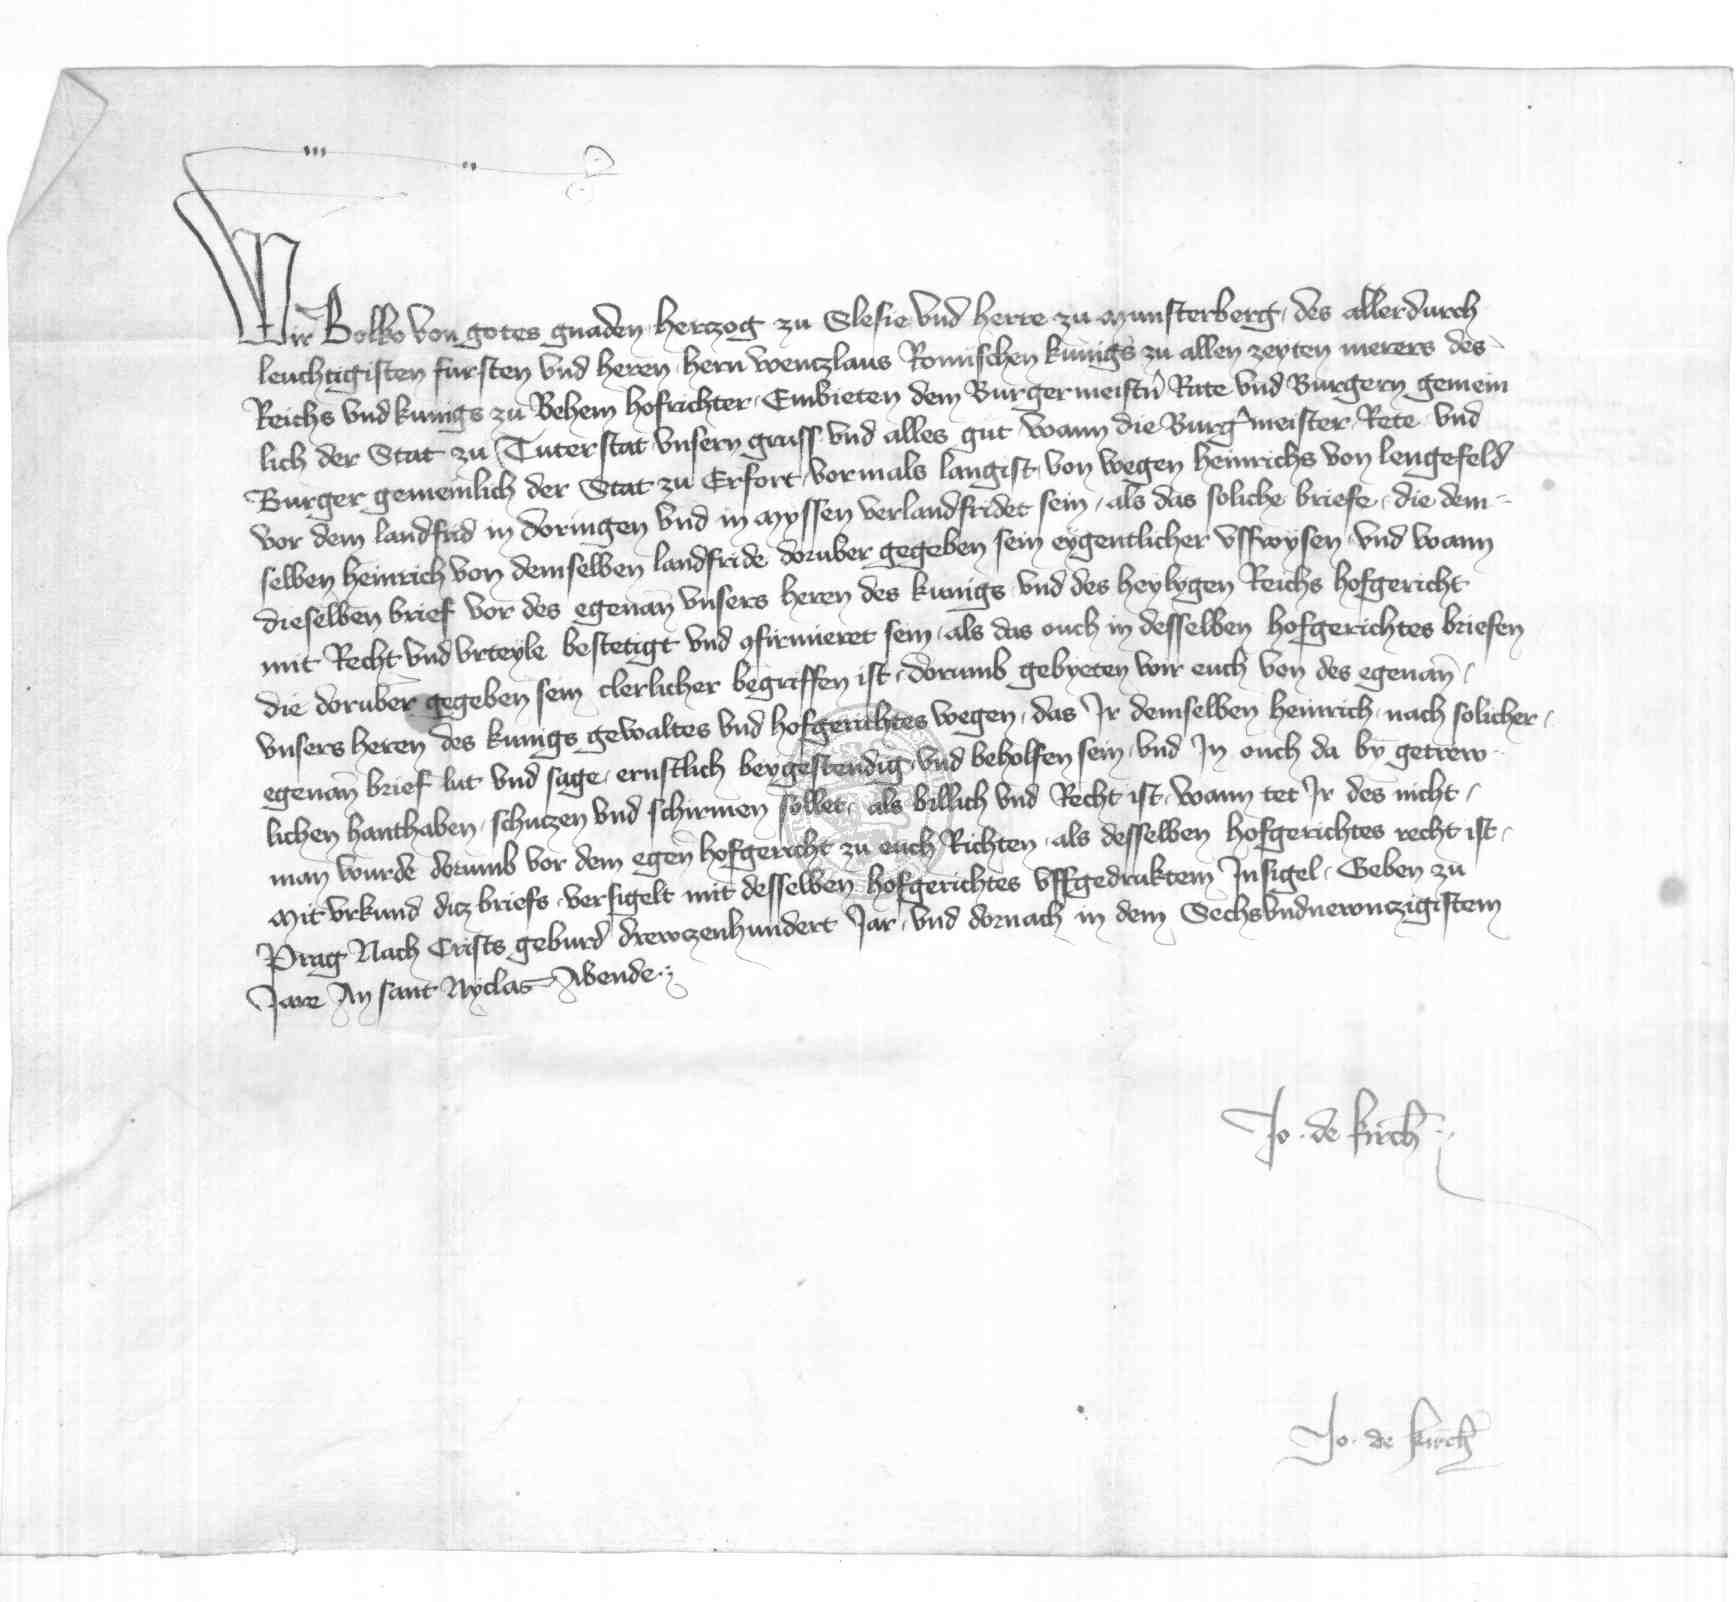 Wir Bolko von gotes gnaden hertzog zu Slesie vnd herre zu Munsterberg, des allerdurch
leuchtigisten fursten vnd heren, hern wentzlaus Romischen kunigs zu allen zeyten merers des
Reichs vnd kunigs zu Behem hofrichter, Embieten dem Burgermeistr̄ Rate vnd Burgern gemein
lich der Stat zu Tuterstat vnsern gruss vnd alles gut, wann die Burg̕meister Rete vnd
Burger gemeinlich der Stat zu Erfort, vormals langist, von wegen heinrichs von lengefeld
vor dem landfrid in doringen vnd in Myssen verlandfridet sein, als das soliche briefe, die dem
selben heinrich von demselben landfride doruber gegeben sein eygentlicher vsswysen, vnd wann
dieselben brief vor des egenan̄ vnsers heren des kunigs vnd des heylygen Reichs hofgericht
mit Recht vnd vrteyle bestetigt vnd ꝯfirmieret sein, als das ouch in desselben hofgerichtes briefen
die doruber gegeben sein clerlicher begriffen ist, dorumb gebyeten wir euch von des egenan̄,
vnsers heren des kunigs gewaltes vnd hofgerichtes wegen, das Ir demselben heinrich, nach solicher,
egenan̄ brief lut vnd sage, ernstlich beygestendig, vnd beholfen sein, vnd In ouch da by getrew
lichen hanthaben, schutzen vnd schirmen sollet, als billich vnd Recht ist, wann tet Ir des nicht,
man wurde dorumb vor dem egen̄ hofgericht zu euch Richten, als desselben hofgerichtes recht ist,
Mit vrkund ditz briefs, versigelt mit desselben hofgerichtes vffgedruktem Insigel, Geben zu
Prag Nach Crists geburd drewtzenhundert Jar, vnd dornach in dem Sechsvndnewntzigistem
Jare An sant Nyclas Abende
Jo. de kirch̄
Jo. de kirch̄